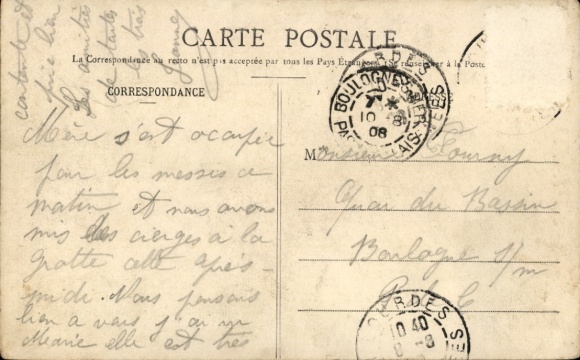 CARTE POSTALE
La Correspondance au recto n'est pas acceptée par tous les Pays Étrangers (Se renseigner à la Poste
CORRESPONDANCE
Mère s'est occupée
pour les messes ce
matin et nous avons
mis des cierges à la
grotte cette après-
midi. Nous pensons
bien a vous j'ai vu
Marie elle est très
contente et
bien
Les amitiés
de toutes
les très
Monsieur Fourny
Quai du Bassin
Boulogne s/m
P. d. C
BOULOGNE-S-MER
PAS-DE-CALAIS
7 *
10 -8
08
LOURDES
10 40